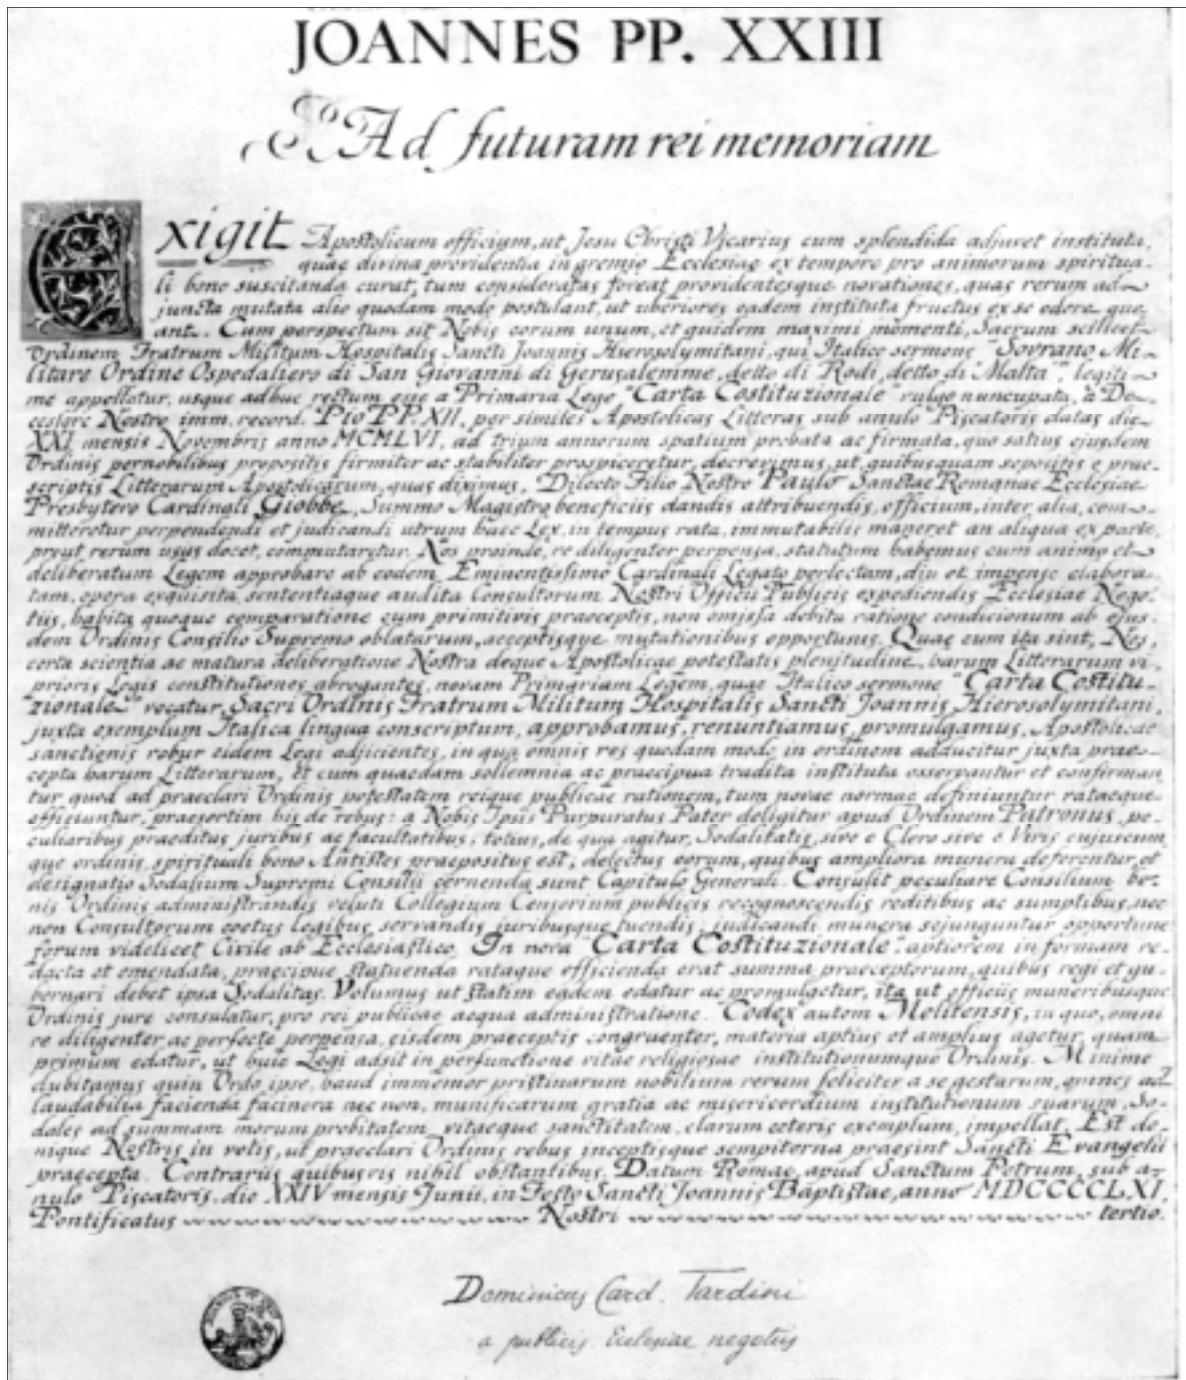 JOANNES PP. XXIII
Ad futuram rei memoriam
Exigit Apostolicum officium, ut Jesu Christi Vicarius cum splendida adjuvet instituta,
quae divina providentia in gremio Ecclesiae ex tempore pro animorum spiritua-
li bono suscitanda curat, tum consideratas foveat providentesque novationes, quas rerum ad-
juncta mutata alio quodam modo postulant, ut uberiores eadem instituta fructus ex se edere que-
ant. Cum perspectum sit Nobis eorum unum, et quidem maximi momenti, Sacrum scilicet
Ordinem Fratrum Militum Hospitalis Sancti Joannis Hierosolymitani, qui Italico sermone "Sovrano Mi-
litare Ordine Ospedaliero di San Giovanni di Gerusalemme, detto di Rodi, detto di Malta", legiti-
me appellatur, usque adhuc rectum esse a Primaria Lege, "Carta Costituzionale" vulgo nuncupata, a De-
cessore Nostro imm. record. Pio PP. XII, per similes Apostolicas Litteras sub anulo Piscatoris datas die
XXI mensis Novembris anno MCMLVI, ad trium annorum spatium probata ac firmata, quo satius ejusdem
Ordinis pernobilibus propositis firmiter ac stabiliter prospiceretur, decrevimus, ut, quibusquam sepositis e prae-
scriptis Litterarum Apostolicarum, quas diximus, Dilecto Filio Nostro Paulo Sanctae Romanae Ecclesiae
Presbytero Cardinali Giobbe, Summo Magistro beneficiis dandis attribuendis, officium, inter alia, com-
mitteretur perpendendi et judicandi utrum haec Lex, in tempus rata, immutabilis maneret an aliqua ex parte,
prout rerum usus docet, commutaretur. Nos proinde, re diligenter perpensa, statutum habemus cum animo et
deliberatum Legem approbare ab eodem Eminentissimo Cardinali Legato perlectam, diu et impense elabora-
tam, opera exquisita, sententiaque audita Consultorum Nostri Officii Publicis expediendis Ecclesiae Nego-
tiis, habita quoque comparatione cum primitivis praeceptis, non omissa debita ratione condicionum ab ejus-
dem Ordinis Consilio Supremo oblatarum, acceptisque mutationibus opportunis. Quae cum ita sint, Nos,
certa scientia ac matura deliberatione Nostra deque Apostolicae potestatis plenitudine, harum Litterarum vi,
prioris Legis constitutiones abrogantes, novam Primariam Legem, quae Italico sermone "Carta Costitu-
zionale" vocatur, Sacri Ordinis Fratrum Militum Hospitalis Sancti Joannis Hierosolymitani,
juxta exemplum Italica lingua conscriptum, approbamus, renuntiamus, promulgamus, Apostolicae
sanctionis robur eidem Legi adjicientes, in qua omnis res quodam modo in ordinem adducitur juxta prae-
cepta harum Litterarum, et cum quaedam sollemnia ac praecipua tradita instituta osservantur et confirman
tur quod ad praeclari Ordinis potestatem reique publicae rationem, tum novae normae definiuntur rataeque
officiuntur, praesertim his de rebus: a Nobis Ipsis Purpuratus Pater deligitur apud Ordinem Patronus, pe-
culiaribus praeditus juribus ac facultatibus; totius, de qua agitur, Sodalitatis, sive e Clero sive e Viris cujuscum
que ordinis, spirituali bono Antistes praepositus est; delectus eorum, quibus ampliora munera deferentur, et
designatio Sodalium Supremi Consilii cernenda sunt Capitulo Generali. Consulit peculiare Consilium bo-
nis Ordinis administrandis veluti Collegium Censorium publicis recognoscendis reditibus ac sumptibus, nec
non Consultorum coetus legibus servandis juribusque tuendis; judicandi munera sejunguntur opportune
forum videlicet Civile ab Ecclesiastico. In nova "Carta Costituzionale" aptiorem in formam re-
dacta et emendata, praecipue statuenda rataque efficienda erat summa praeceptorum, quibus regi et gu-
bernari debet ipsa Sodalitas. Volumus ut statim eadem edatur ac promulgetur, ita ut officiis muneribusque
Ordinis jure consulatur, pro rei publicae aequa administratione. Codex autem Melitensis, in quo, omni
re diligenter ac perfecte perpensa, eisdem praeceptis congruenter, materia aptius et amplius agetur, quam
primum edatur, ut huic Legi adsit in perfunctione vitae religiosae institutionumque Ordinis. Minime
dubitamus quin Ordo ipse, haud immemor pristinarum nobilium rerum feliciter a se gestarum, omnes ad
laudabilia facienda facinora nec non, munificarum gratia ac misericordium institutionum suarum, So-
dales ad summam morum probitatem, vitaeque sanctitatem, clarum ceteris exemplum, impellat. Est de-
nique Nostris in votis, ut praeclari Ordinis rebus inceptisque sempiterna praesint Sancti Evangelii
praecepta. Contrariis quibusvis nihil obstantibus. Datum Romae, apud Sanctum Petrum, sub a-
nulo Piscatoris, die XXIV mensis Junii, in Festo Sancti Joannis Baptistae, anno MDCCCCLXI,
Pontificatus Nostri tertio.
Dominicus Card. Tardini
a publicis Ecclesiae negotiis